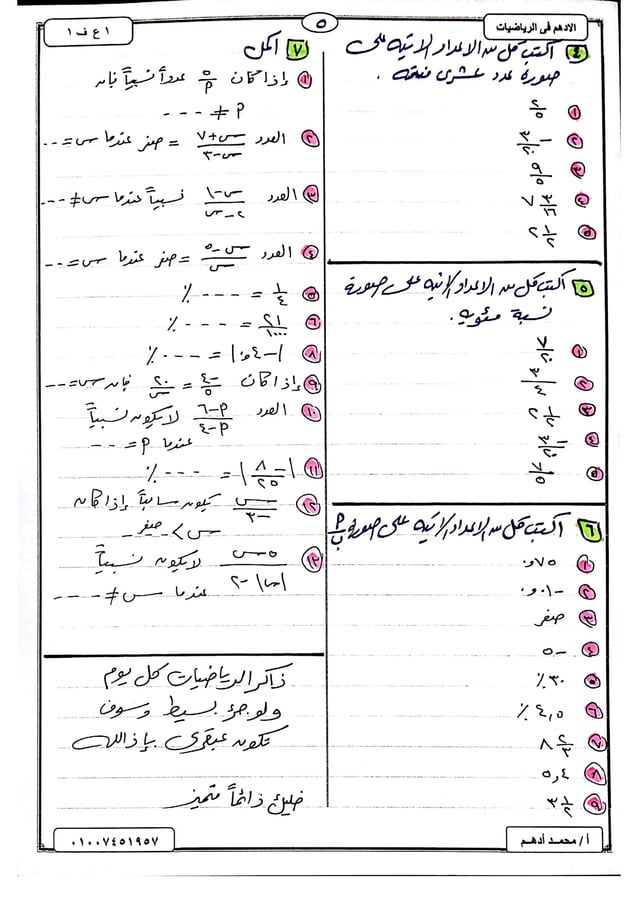 الادهم فى الرياضيات
٥
١ ع ف ١
٤ اكتب كل من الاعداد الاتية على
صورة عدد عشرى منته .
١ ٢/٥
٢ -٣/٢٠
٣ ٩/٥
٤ ٧ ٣/١٦
٥ ٢ ١/٢
٥ اكتب كل من الاعداد الاتية على صورة
نسبة مئوية .
١ ٧/٢٠
٢ ٣/٤
٣ ٢ ١/٢
٤ -٣/٢٠
٥ ٧/٥
٦ اكتب كل من الاعداد الاتية على صورة P/ب
١ ٧٥و٠
٢ -٠١و٠
٣ صفر
٤ -٥
٥ ٣٠٪
٦ ٤,٥٪
٧ ٨ ٢/٣
٨ ٥,٤
٩ ٣ ١/٢
٧ اكمل
١ إذا كان ٥/P عدداً نسبياً فإن
P ≠ ---
٢ العدد س+٧/س-٣ = صفر عندما س = --
٣ العدد س-١/٢-س نسبياً عندما س ≠ ---
٤ العدد س-٥/س = صفر عندما س = --
٥ ١/٤ = --- ٪
٦ ٢١/١٠٠٠ = --- ٪
٨ |-٤و٠| = --- ٪
٩ إذا كان -٤/٥ = ٢٠/س فإن س = --
١٠ العدد P-٦/P-٤ لا يكون نسبياً
عندما P = --
١١ |-٨/٢٥| = --- ٪
١٢ س/-٣ يكون سالباً إذا كان
س > صفر
١٣ لا يكون نسبياً
عندما س ≠ ----
ذاكر الرياضيات كل يوم
ولو جزء بسيط وسوف
تكون عبقرى بإذن الله
خليك دائماً متميز
أ / محمد أدهم
٠١٠٠٧٤٥١٩٥٧